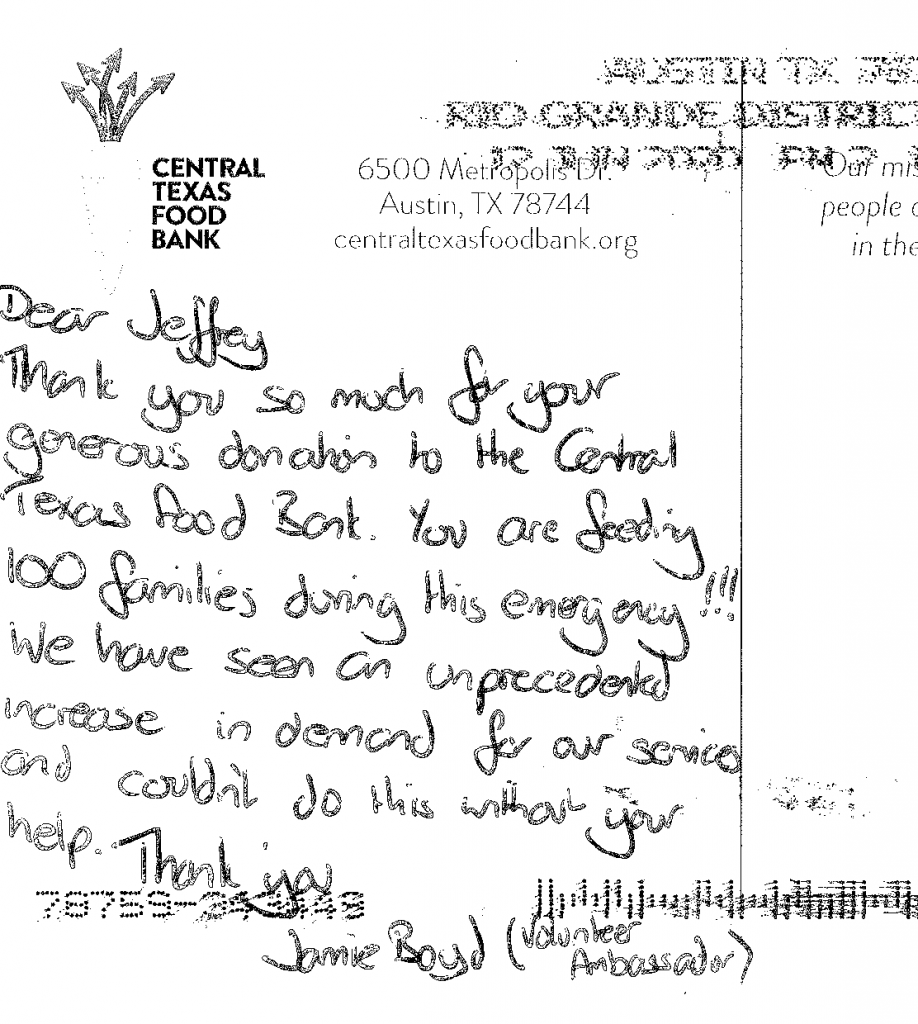 AUSTIN TX
RIO GRANDE DISTRICT
12 JUN PM
CENTRAL
TEXAS
FOOD
BANK
6500 Metropolis Dr.
Austin, TX 78744
centraltexasfoodbank.org
Our mis
people o
in the
Dear Jeffrey
Thank you so much for your
generous donation to the Central
Texas Food Bank. You are feeding
100 families during this emergency!!!
We have seen an unprecedented
increase in demand for our services
and couldn't do this without your
help. Thank you
78759-
Jamie Boyd (Volunteer
Ambassador)